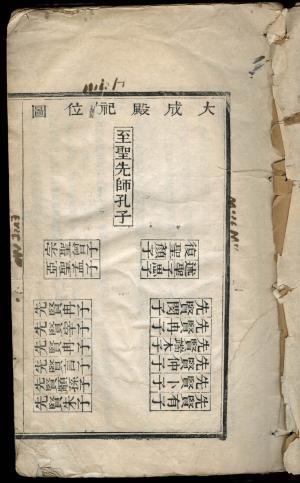 大成殿祀位圖
至聖先師孔子
復聖顏子
述聖子思子
宗聖曾子
亞聖孟子
先賢閔子
先賢冉子
先賢端木子
先賢仲子
先賢卜子
先賢有子
先賢冉子
先賢宰子
先賢冉子
先賢言子
先賢顓孫子
先賢朱子